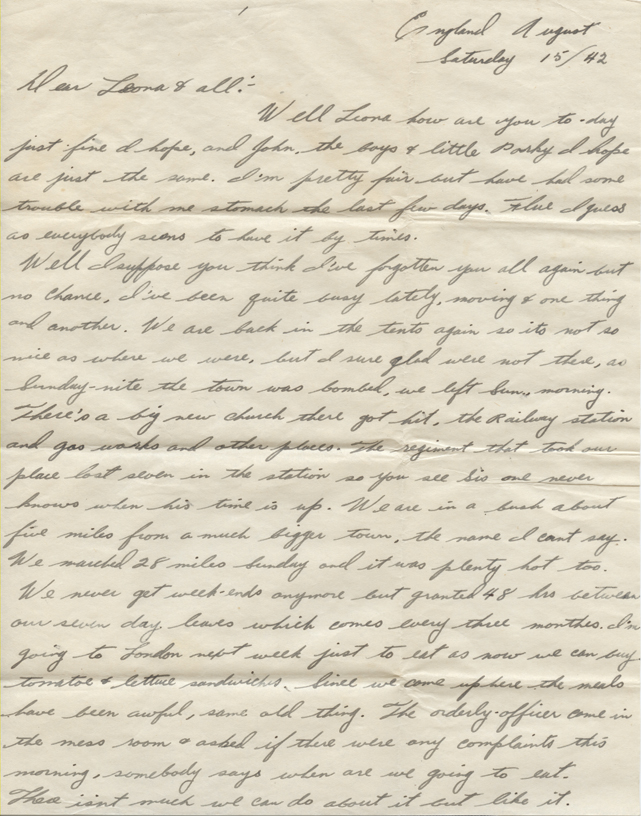 England August
Saturday 15/42
Dear Leona & all:-
Well Leona how are you to-day
just fine I hope, and John, the boys & little Porky I hope
are just the same. I'm pretty fair but have had some
trouble with me stomach the last few days. Flue I guess
as everybody seems to have it by times.
Well I suppose you think I've forgotten you all again but
no chance, I've been quite busy lately, moving & one thing
and another. We are back in the tents again so its not so
nice as where we were, but I sure glad were not there, as
Sunday-nite the town was bombed, we left Sun., morning.
There's a big new church there got hit, the Railway station
and gas works and other places. The regiment that took our
place lost seven in the station so you see Sis one never
knows when his time is up. We are in a bush about
five miles from a much bigger town, the name I cant say.
We marched 28 miles Sunday and it was plenty hot too.
We never get week-ends anymore but granted 48 hrs between
our seven day leaves which comes every three monthes. I'm
going to London next week just to eat as now we can buy
tomatoe & lettuce sandwiches. Since we come up here the meals
have been awful, same old thing. The orderly-officer came in
the mess room & asked if there were any complaints this
morning, somebody says when are we going to eat.
There isnt much we can do about it but like it.